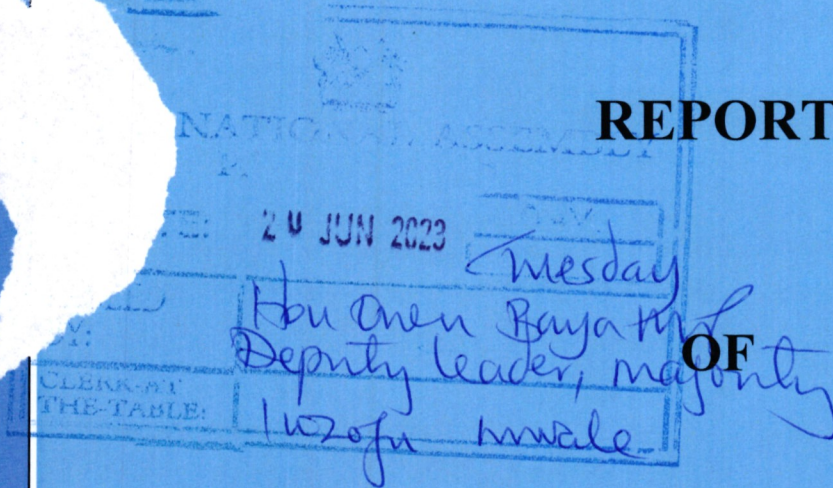 REPORT
NATIONAL ASSEMBLY
20 JUN 2023
DAY.
Tuesday
Hon Owen Baya MP
BY:
Deputy leader, majority
OF
CLERK-AT
THE-TABLE:
Inzofu Mwale